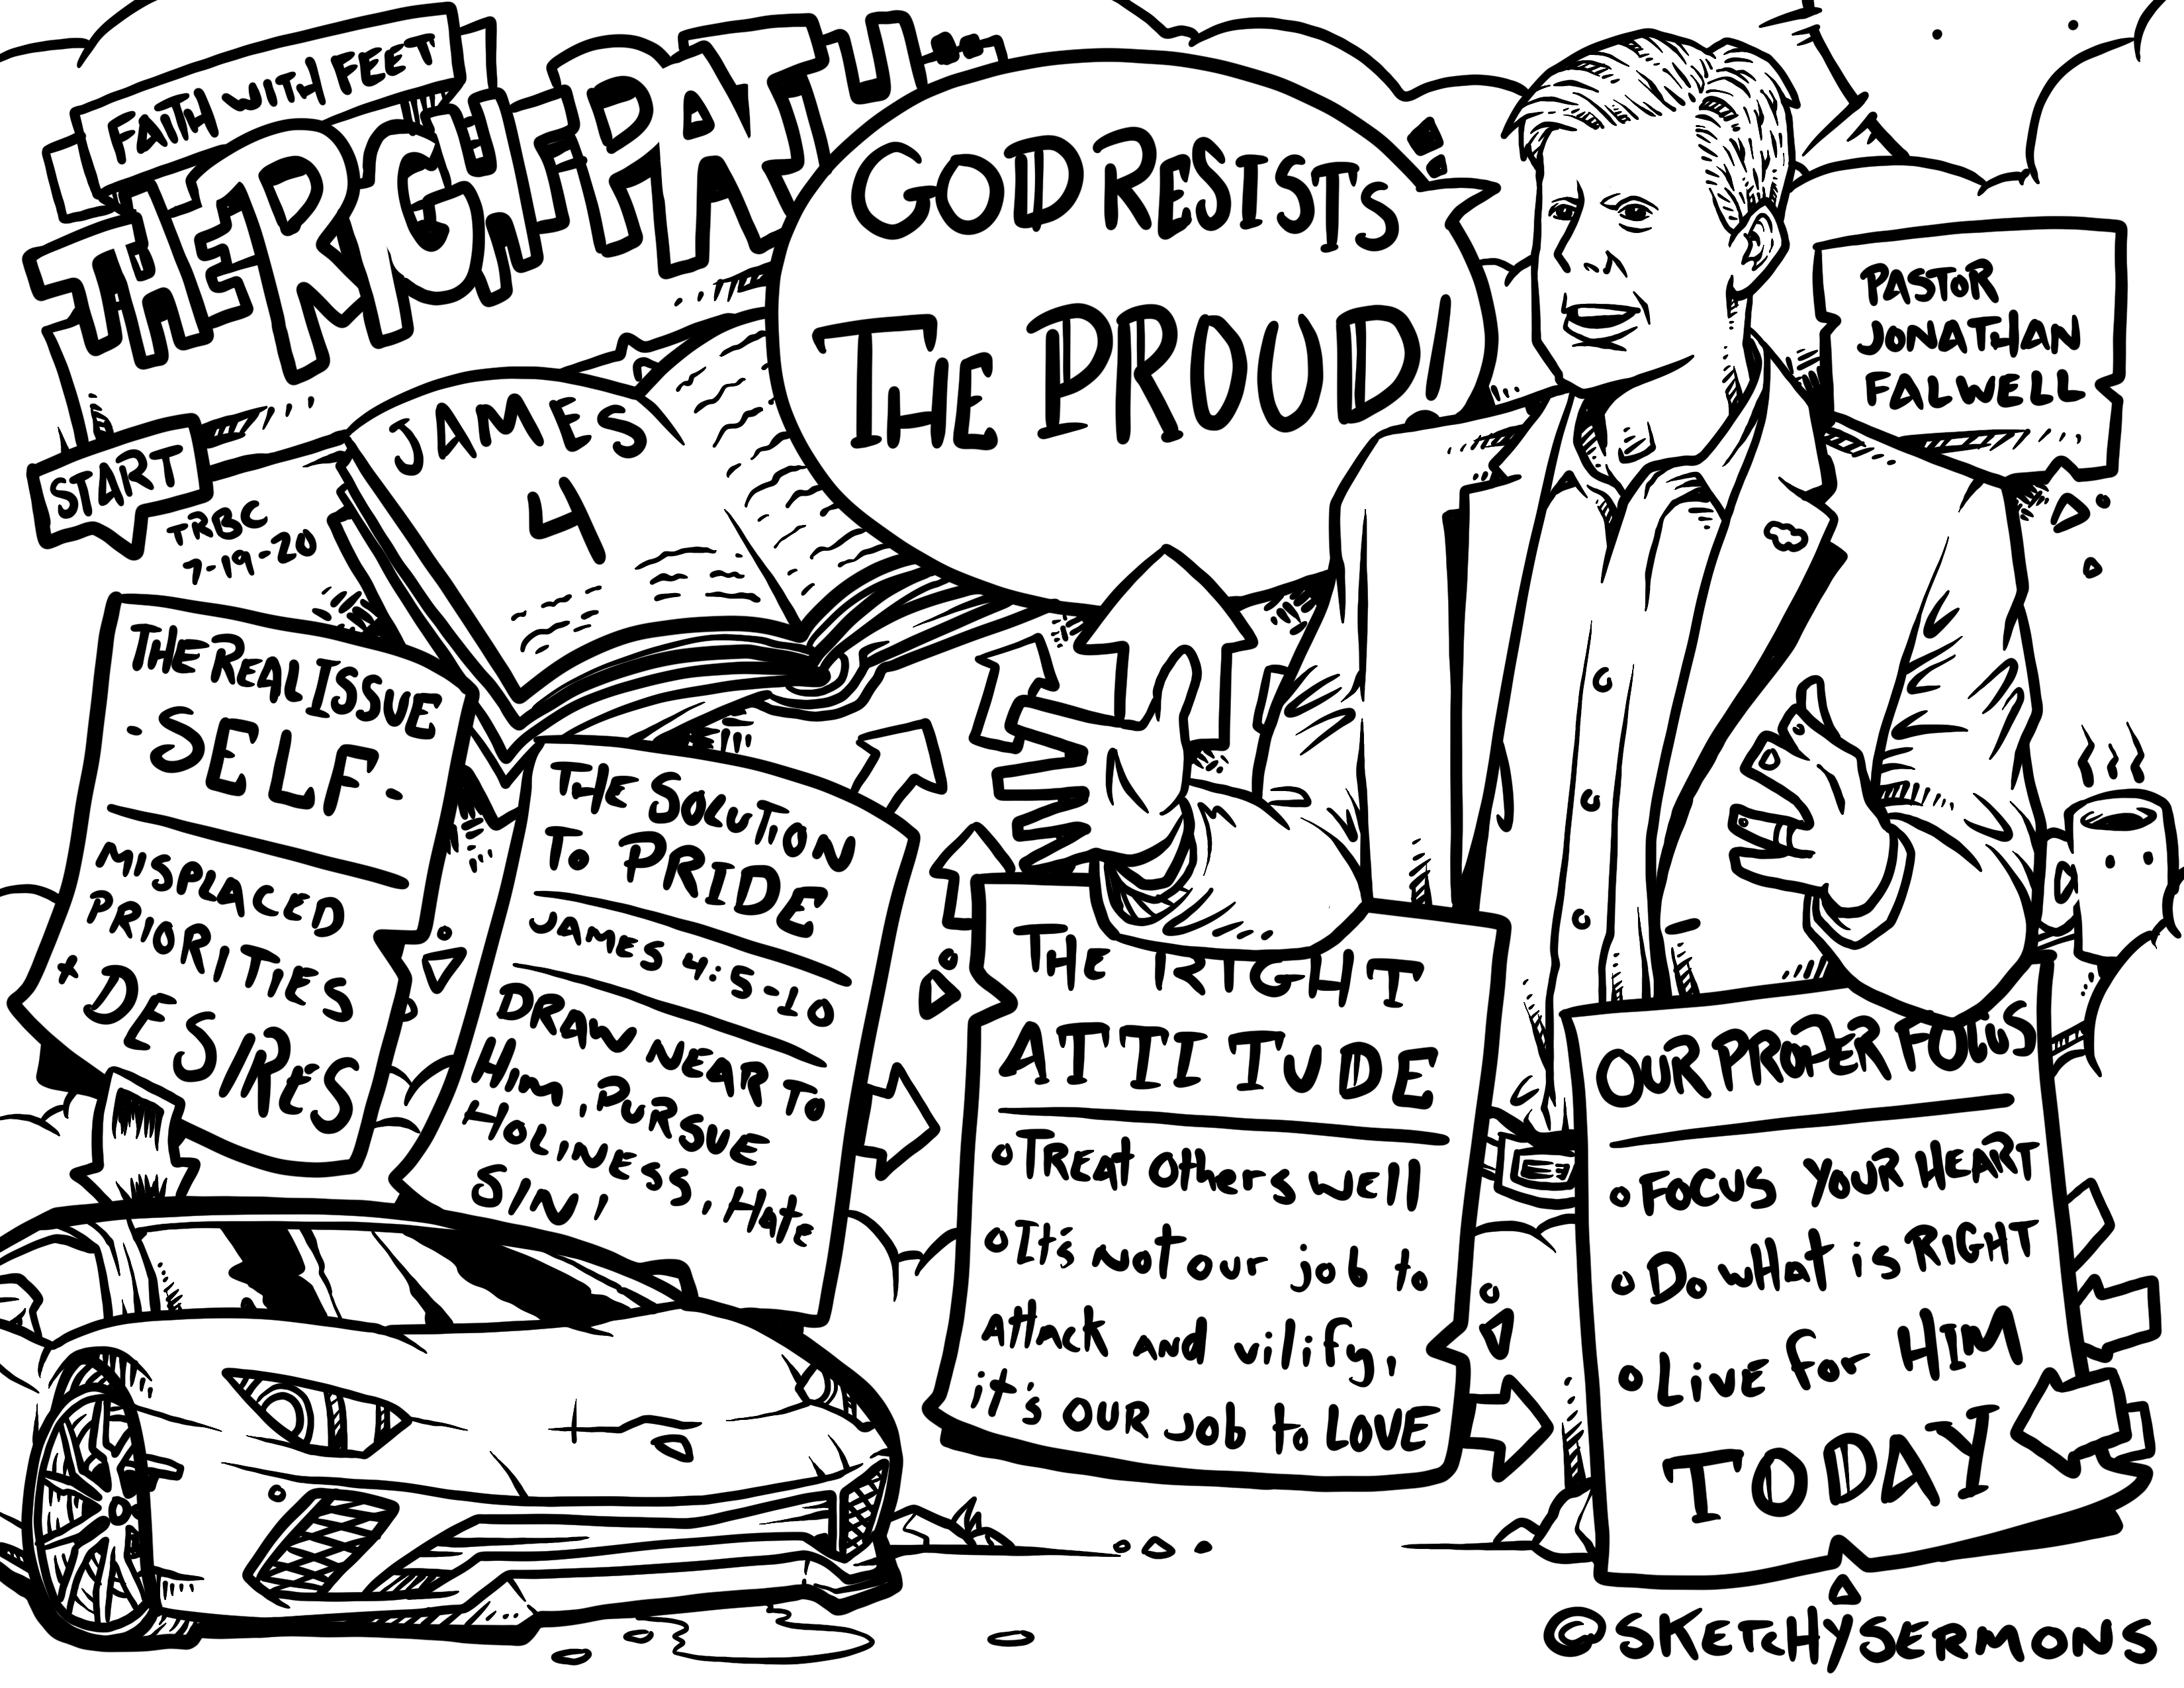 FAITH WITH FEET
GOD RESISTS
THE PROUD
PASTOR
JONATHAN
FALWELL
START
TRBC
7-19-20
JAMES
4
THE REAL ISSUE
-SELF-
MISPLACED
PRIORITIES
+ DESIRES
THE SOLUTION
TO PRIDE
JAMES 4:5-10
DRAW NEAR TO
HIM, PURSUE
HOLINESS, HATE
SIN,
THE RIGHT
ATTITUDE
o TREAT OTHERS WELL
o It's not our job to
Attack AND vilify,
it's OUR Job to LOVE
OUR PROPER FOCUS
o FOCUS YOUR HEART
o Do WHAT is RIGHT
o LIVE for HIM
TODAY
© SKETCHY SERMONS